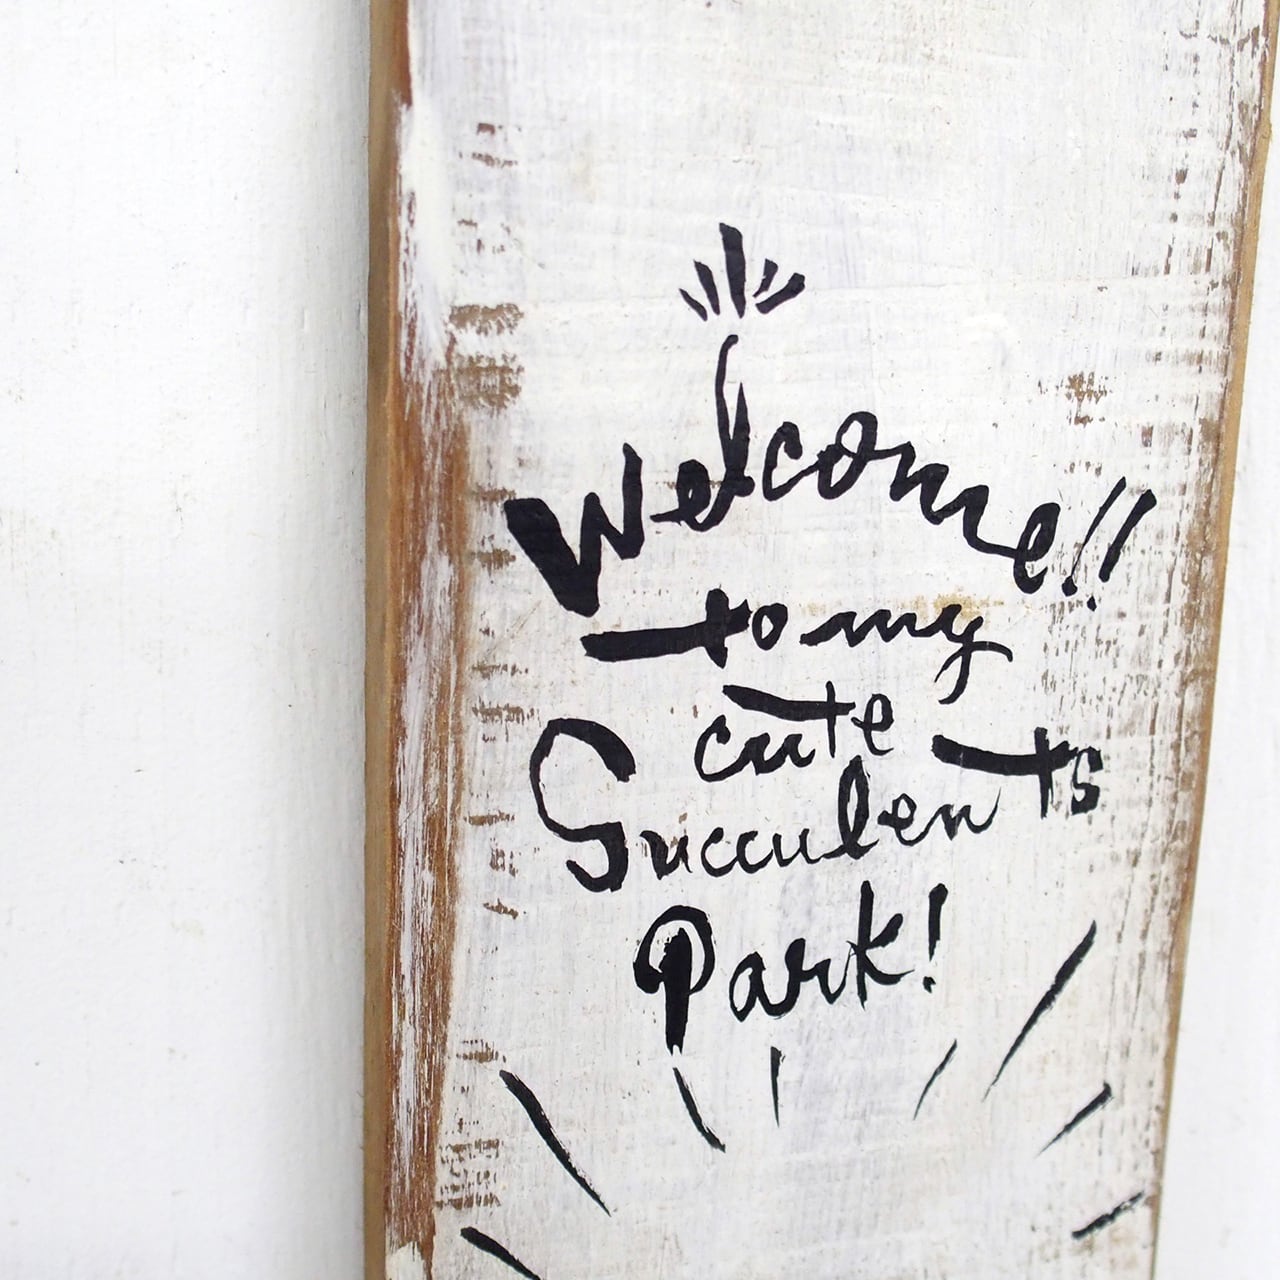 Welcome!!
to my
cute
Succulents
Park!